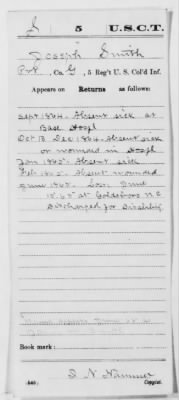 S 5 U.S.C.T.
Joseph Smith
Pvt, Co. G, 5 Reg't U. S. Col'd Inf.
Appears on Returns as follows:
Sept 1864. Absent sick at
Base Hospl
Oct to Dec 1864. Absent sick
or wounded in Hospl
Jan 1865. Absent sick
Feb 1865. Absent wounded
June 1865. Loss June
1865 at Goldsboro N.C
Discharged for Disability
Book mark:
(546)
Copyist.